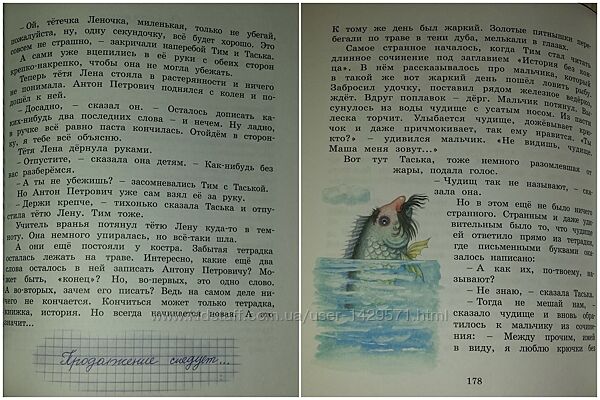 – Ой, тётечка Леночка, миленькая, только не убегай,
пожалуйста, ну, одну секундочку, всё будет хорошо. Это
совсем не страшно, – закричали наперебой Тим и Таська.
А сами уже вцепились в её руки с обеих сторон
крепко-накрепко, чтобы она не могла убежать.
Теперь тётя Лена стояла в растерянности и ничего
не понимала. Антон Петрович поднялся с колен и по-
дошёл к ней.
– Досадно, – сказал он. – Осталось дописать ка-
ких-нибудь два последних слова – и нечем. Ну ладно,
в ручке всё равно паста кончилась. Отойдём в сторон-
ку, я тебе всё объясню.
Тётя Лена дёрнула руками.
– Отпустите, – сказала она детям. – Как-нибудь без
вас разберёмся.
– А ты не убежишь? – засомневались Тим с Таськой.
Но Антон Петрович уже сам взял её за руку.
– Держи крепче, – тихонько сказала Таська и отпу-
стила тётю Лену. Тим тоже.
Учитель вранья потянул тётю Лену куда-то в тем-
ноту. Она немного упиралась, но всё-таки шла.
А они ещё постояли у костра. Забытая тетрадка
осталась лежать на траве. Интересно, какие ещё два
слова осталось в ней записать Антону Петровичу? Мо-
жет быть, «конец»? Но, во-первых, это одно слово.
А во-вторых, зачем его писать? Ведь на самом деле ни-
чего не кончается. Кончиться может только тетрадка,
книжка, история. Но всегда начинается новая. А
значит...
Продолжение следует...
К тому же день был жаркий. Золотые пятнышки пере-
бегали по траве в тени дуба, мелькали в глазах.
Самое странное началось, когда Тим стал читать
длинное сочинение под заглавием «История без кон-
ца». В нём рассказывалось про мальчика, который
в такой же вот жаркий день пошёл ловить рыбу.
Забросил удочку, поставил рядом железное ведёрко,
ждёт. Вдруг поплавок – дёрг! Мальчик потянул. Вы-
сунулось из воды чудище с усатым носом. Из пасти
леска торчит. Улыбается чудище, дожёвывает крю-
чок и даже причмокивает, так ему нравится. «Ты
кто?» – удивился мальчик. «Не видишь, чудище.
Маша меня зовут...»
Вот тут Таська, тоже немного разомлевшая от
жары, подала голос.
– Чудищ так не называют, – ска-
зала она.
Но в этом ещё не было ничего
странного. Странным и даже уди-
вительным было то, что чудище
ей ответило прямо из тетрадки,
где письменными буквами ока-
залось написано:
– А как их, по-твоему, на-
зывают?
– Не знаю, – сказала Таська.
– Тогда не мешай нам, –
сказало чудище и вновь обра-
тилось к мальчику из сочине-
ния: – Между прочим, имей
в виду, я люблю крючки без
178